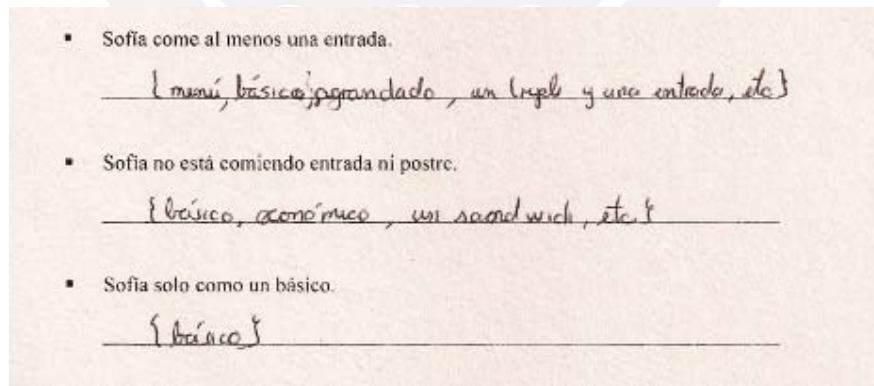 ▪ Sofía come al menos una entrada.
{ menú, básico, agrandado, un triple y una entrada, etc }
▪ Sofía no está comiendo entrada ni postre.
{ básico, económico, un sandwich, etc }
▪ Sofía solo como un básico.
{ básico }